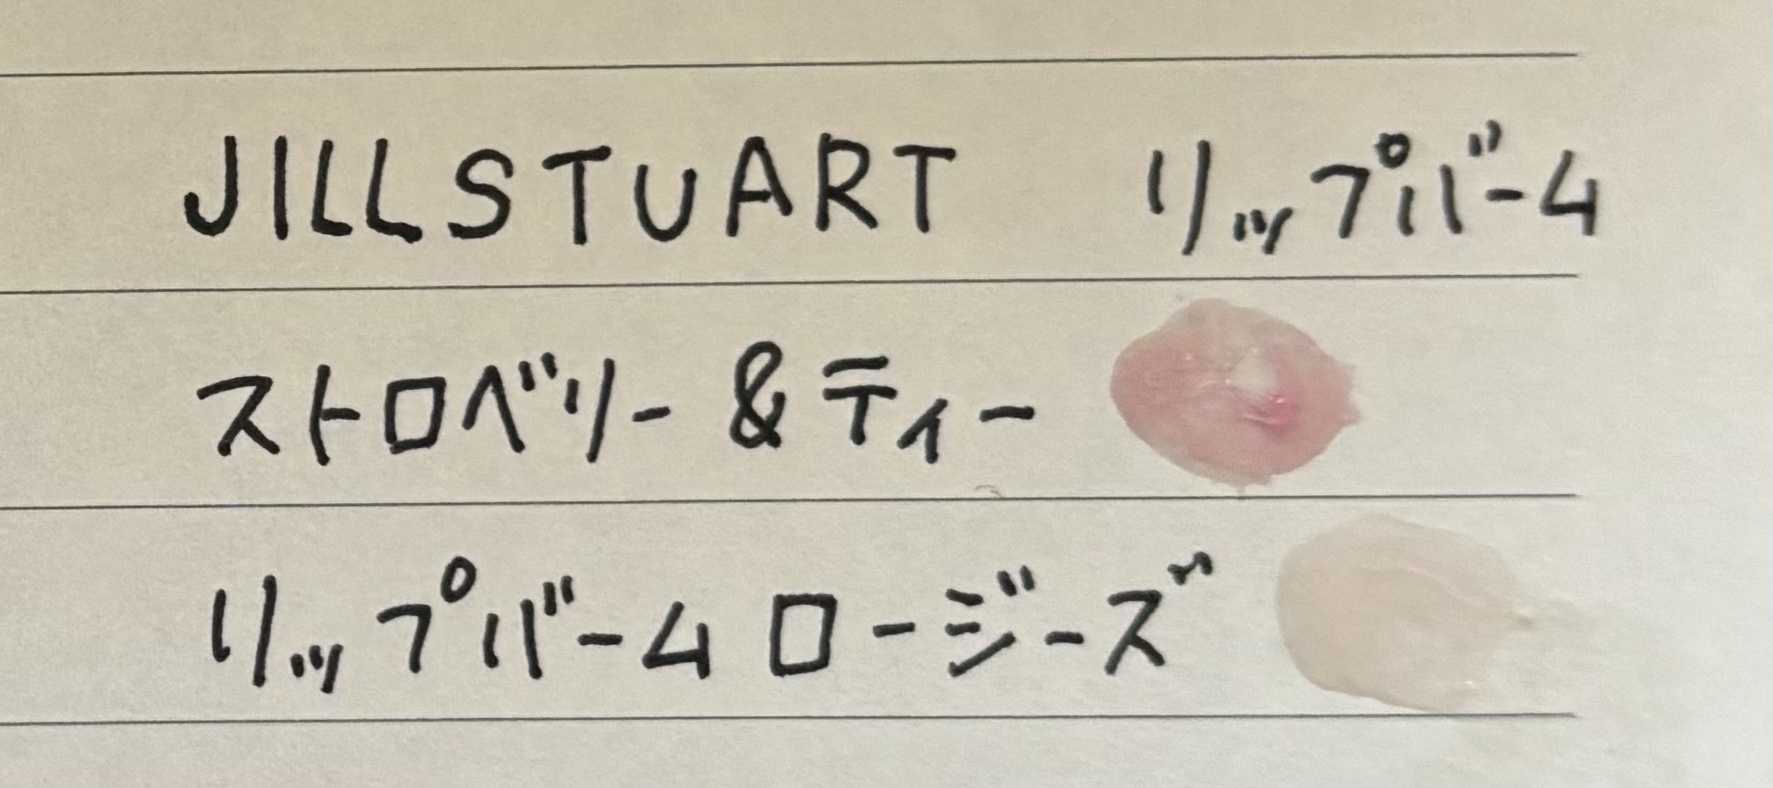 JILLSTUART リップバーム
ストロベリー&ティー
リップバームロージーズ